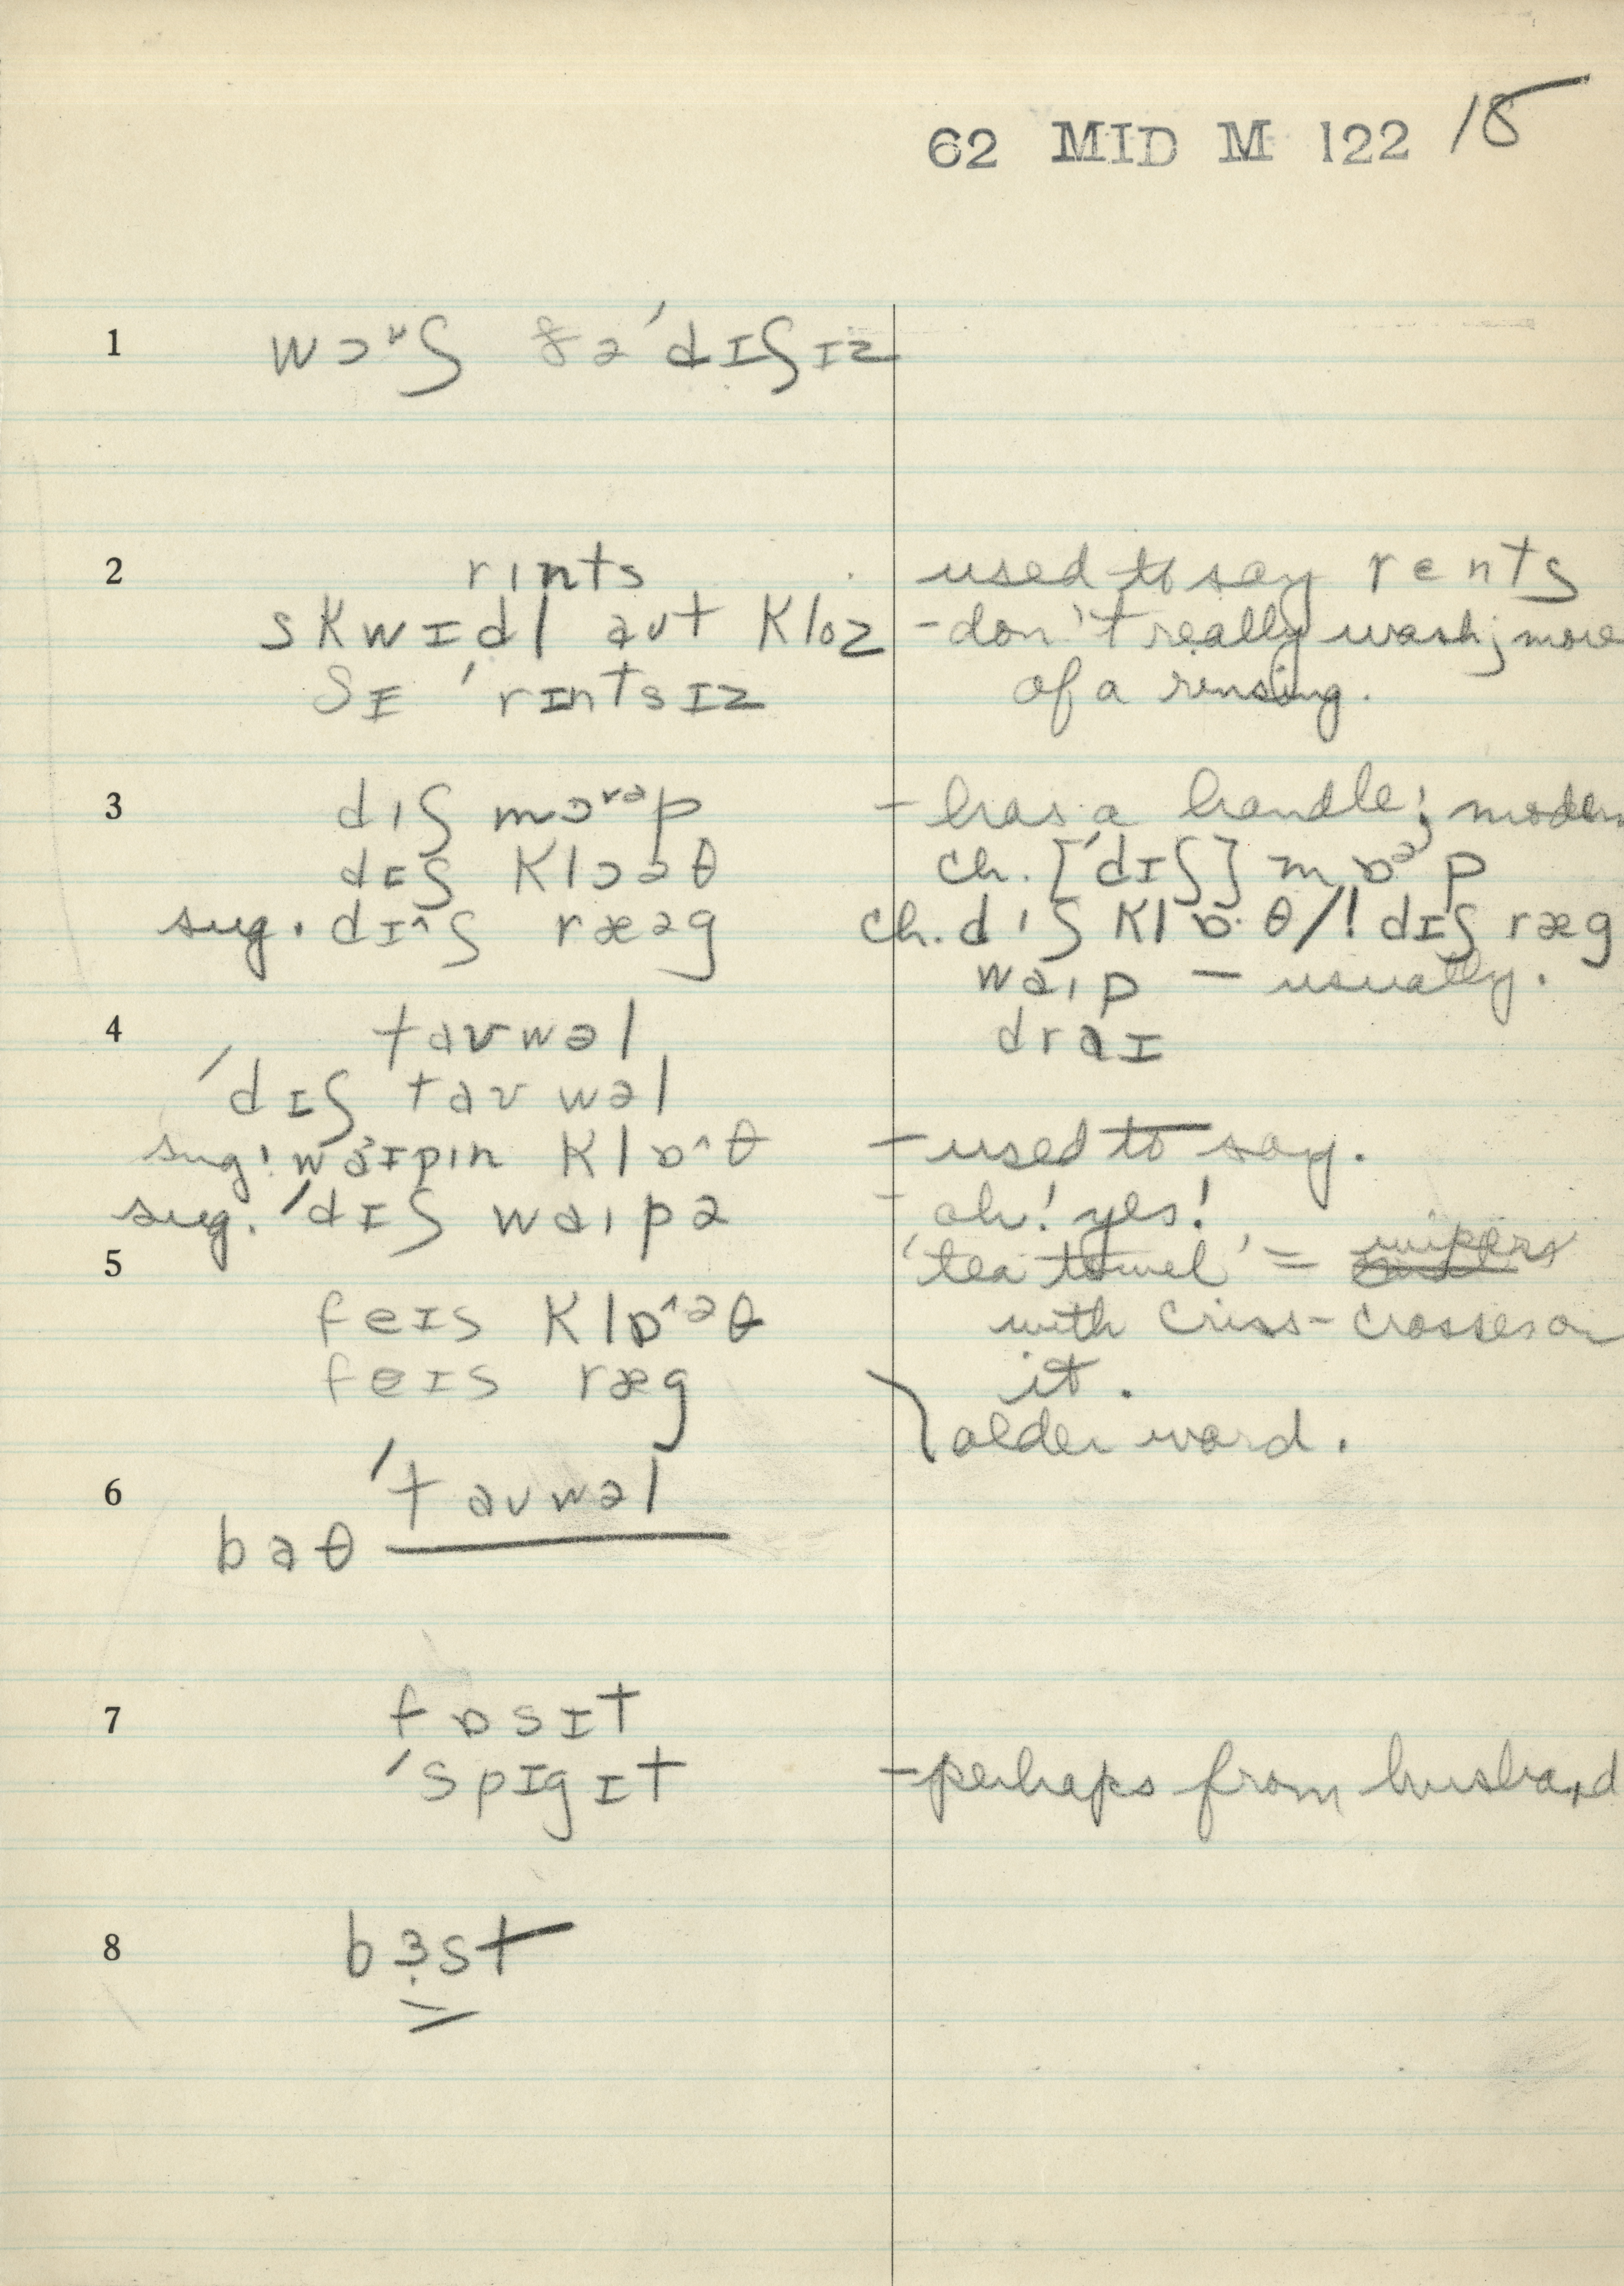 62 MID M 122 18
1 wɔᶷʃ ðə ˈdɪʃɪz
2 rınts used to say rents
skwɪdl aʊt kloz - don't really wash; more
ʃɪ ˈrɪntsɪz of a rinsing.
3 dıʃ mɔᶷᵊp - has a handle; modern
dɪʃ klɔəθ ch. [ˈdɪʃ] mɒᵊp
sug. dɪ^ʃ ræəg ch. dıʃ klɒ·θ/! dɪʃ ræg
waıp - usually.
4 taʊwəl draɪ
ˈdɪʃ taʊwəl
sug! waɪpın klɒ^θ - used to say.
sug. ˈdɪʃ waıpə - oh! yes!
5 'tea towel' = wipers
feɪs klɒ^ᵊθ with criss-crosses on
feɪs ræg it.
older word.
6 ˈtaʊwəl
baθ
7 fɒsɪt
ˈspɪgɪt - perhaps from husband
8 bɜst